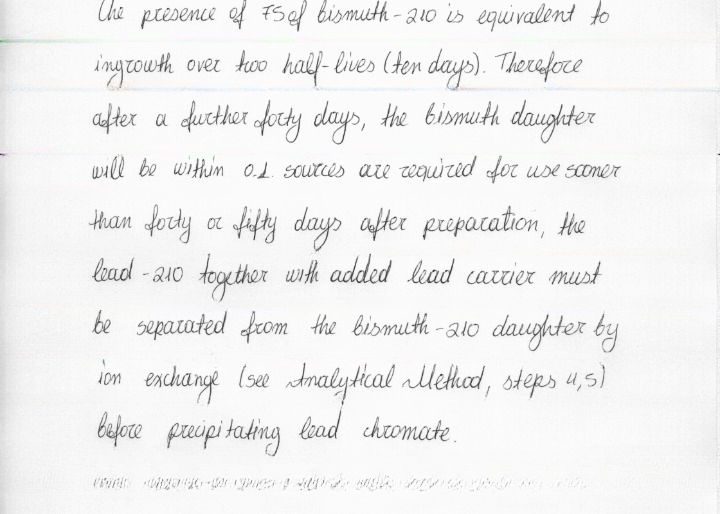 The presence of 75 of bismuth-210 is equivalent to
ingrowth over two half-lives (ten days). Therefore
after a further forty days, the bismuth daughter
will be within 0.1. sources are required for use sooner
than forty or fifty days after preparation, the
lead-210 together with added lead carrier must
be separated from the bismuth-210 daughter by
ion exchange (see Analytical Method, steps 4,5)
before precipitating lead chromate.